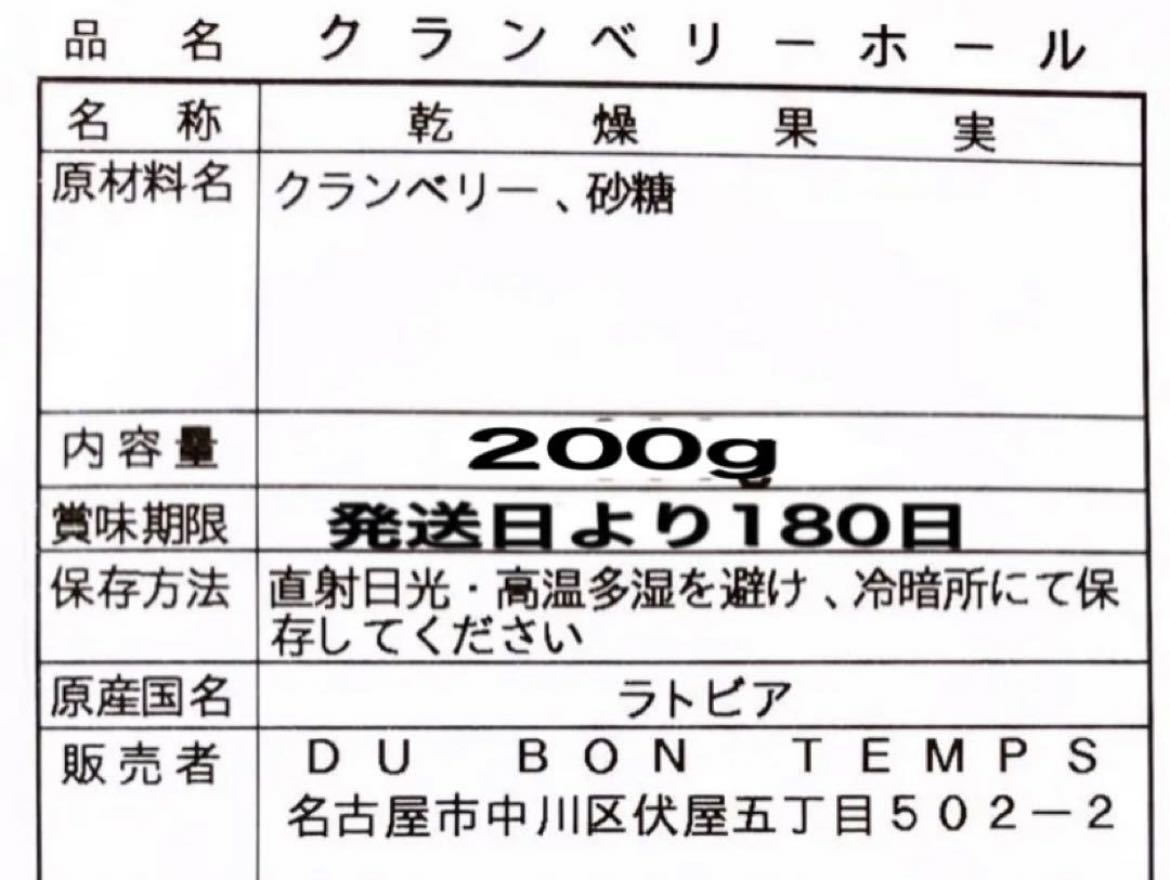 品名 クランベリーホール
名称 乾燥果実
原材料名 クランベリー、砂糖
内容量 200g
賞味期限 発送日より180日
保存方法 直射日光・高温多湿を避け、冷暗所にて保
存してください
原産国名 ラトビア
販売者 DU BON TEMPS
名古屋市中川区伏屋五丁目502－2